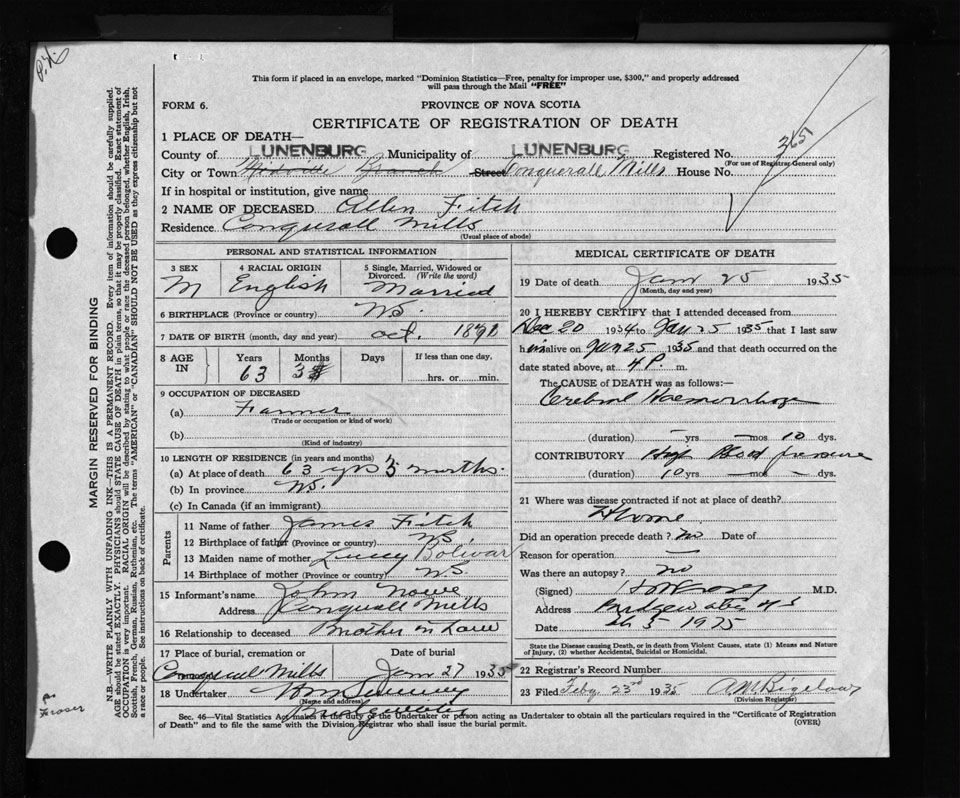 This form if placed in an envelope, marked "Dominion Statistics—Free, penalty for improper use, $300," and properly addressed
will pass through the Mail "FREE"
FORM 6.
PROVINCE OF NOVA SCOTIA
CERTIFICATE OF REGISTRATION OF DEATH
3651
1 PLACE OF DEATH—
County of LUNENBURG Municipality of LUNENBURG Registered No.
(For use of Registrar General only)
City or Town Branch Street Conquerall Mills House No.
If in hospital or institution, give name
2 NAME OF DECEASED Allen Fitch
Residence Conquerall Mills
(Usual place of abode)
PERSONAL AND STATISTICAL INFORMATION
3 SEX M
4 RACIAL ORIGIN English
5 Single, Married, Widowed or Divorced. (Write the word) Married
6 BIRTHPLACE (Province or country) NS.
7 DATE OF BIRTH (month, day and year) Oct. 1891
8 AGE IN Years 63 Months 3 Days If less than one day, hrs. or min.
9 OCCUPATION OF DECEASED
(a) Farmer
(Trade or occupation or kind of work)
(b)
(Kind of industry)
10 LENGTH OF RESIDENCE (in years and months)
(a) At place of death 63 yrs 3 months.
(b) In province NS.
(c) In Canada (if an immigrant)
Parents
11 Name of father James Fitch
12 Birthplace of father (Province or country) NS.
13 Maiden name of mother Lucey Bolivar
14 Birthplace of mother (Province or country) NS.
15 Informant's name John Nowe
Address Conquerall Mills
16 Relationship to deceased Brother in Law
17 Place of burial, cremation or Conquerall Mills
Date of burial Jan 27 1935
18 Undertaker Wm
(Name and address)
Bridgewater
MEDICAL CERTIFICATE OF DEATH
19 Date of death Jan 25 1935
(Month, day and year)
20 I HEREBY CERTIFY that I attended deceased from
Dec 20 1934 to Jan 25 1935 that I last saw
him alive on Jan 25 1935 and that death occurred on the
date stated above, at 4 P. m.
The CAUSE OF DEATH was as follows:—
Cerebral Haemorrhage
(duration) – yrs – mos 10 dys.
CONTRIBUTORY High Blood pressure
(duration) 10 yrs. – mos – dys.
21 Where was disease contracted if not at place of death?
Home
Did an operation precede death? no Date of
Reason for operation —
Was there an autopsy? no
(Signed) M.D.
Address Bridgewater NS
Date
State the Disease causing Death, or in Death from Violent Causes, state (1) Means and Nature of Injury, (2) whether Accidental, Suicidal or Homicidal.
22 Registrar's Record Number
23 Filed Feby 23rd 1935 A M Bigelow
(Division Registrar)
Sec. 46—Vital Statistics Act makes it the duty of the Undertaker or person acting as Undertaker to obtain all the particulars required in the "Certificate of Registration
of Death" and to file the same with the Division Registrar who shall issue the burial permit.
(OVER)
MARGIN RESERVED FOR BINDING
N.B.—WRITE PLAINLY WITH UNFADING INK—THIS IS A PERMANENT RECORD. Every item of information should be carefully supplied.
AGE should be stated EXACTLY. PHYSICIANS should STATE CAUSE OF DEATH in plain terms, so that it may be properly classified. Exact statement of
OCCUPATION is very important. RACIAL ORIGIN will be described by stating to what people or race the deceased person belonged, whether English, Irish,
Scottish, French, German, Russian, Ruthenian, etc. The terms "AMERICAN" or "CANADIAN" SHOULD NOT BE USED as they express citizenship but not
a race or people. See instructions on back of certificate.
Fraser